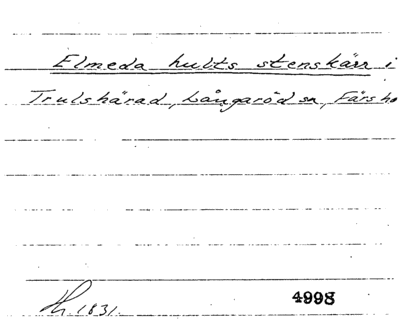 Elmeda hults stenskärr i
Trulshärad, Långaröd sn, Färs h
1831.
4998